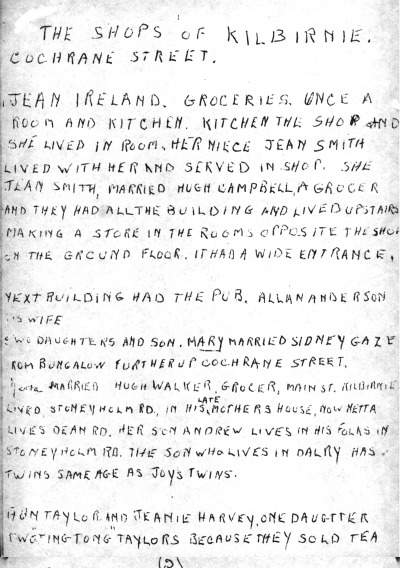 THE SHOPS OF KILBIRNIE.
COCHRANE STREET.
JEAN IRELAND. GROCERIES. ONCE A
ROOM AND KITCHEN. KITCHEN THE SHOP AND
SHE LIVED IN ROOM. HER NIECE JEAN SMITH
LIVED WITH HER AND SERVED IN SHOP. SHE
JEAN SMITH, MARRIED HUGH CAMPBELL, A GROCER
AND THEY HAD ALL THE BUILDING AND LIVED UPSTAIRS
MAKING A STORE IN THE ROOMS OPPOSITE THE SHOP
ON THE GROUND FLOOR. IT HAD A WIDE ENTRANCE.
NEXT BUILDING HAD THE PUB. ALLAN ANDERSON
HIS WIFE
TWO DAUGHTERS AND SON. MARY MARRIED SIDNEY GAZE
FROM BUNGALOW FURTHER UP COCHRANE STREET.
MARRIED HUGH WALKER, GROCER, MAIN ST. KILBIRNIE
LIVED, STONEYHOLM RD., IN HIS LATE MOTHERS HOUSE, NOW NETTA
LIVES DEAN RD. HER SON ANDREW LIVES IN HIS FOLKS IN
STONEYHOLM RD. THE SON WHO LIVES IN DALRY HAS
TWINS SAME AGE AS JOYS TWINS.
TAYLOR AND JEANIE HARVEY, ONE DAUGTTER
"TING TONG" TAYLORS BECAUSE THEY SOLD TEA
(2)